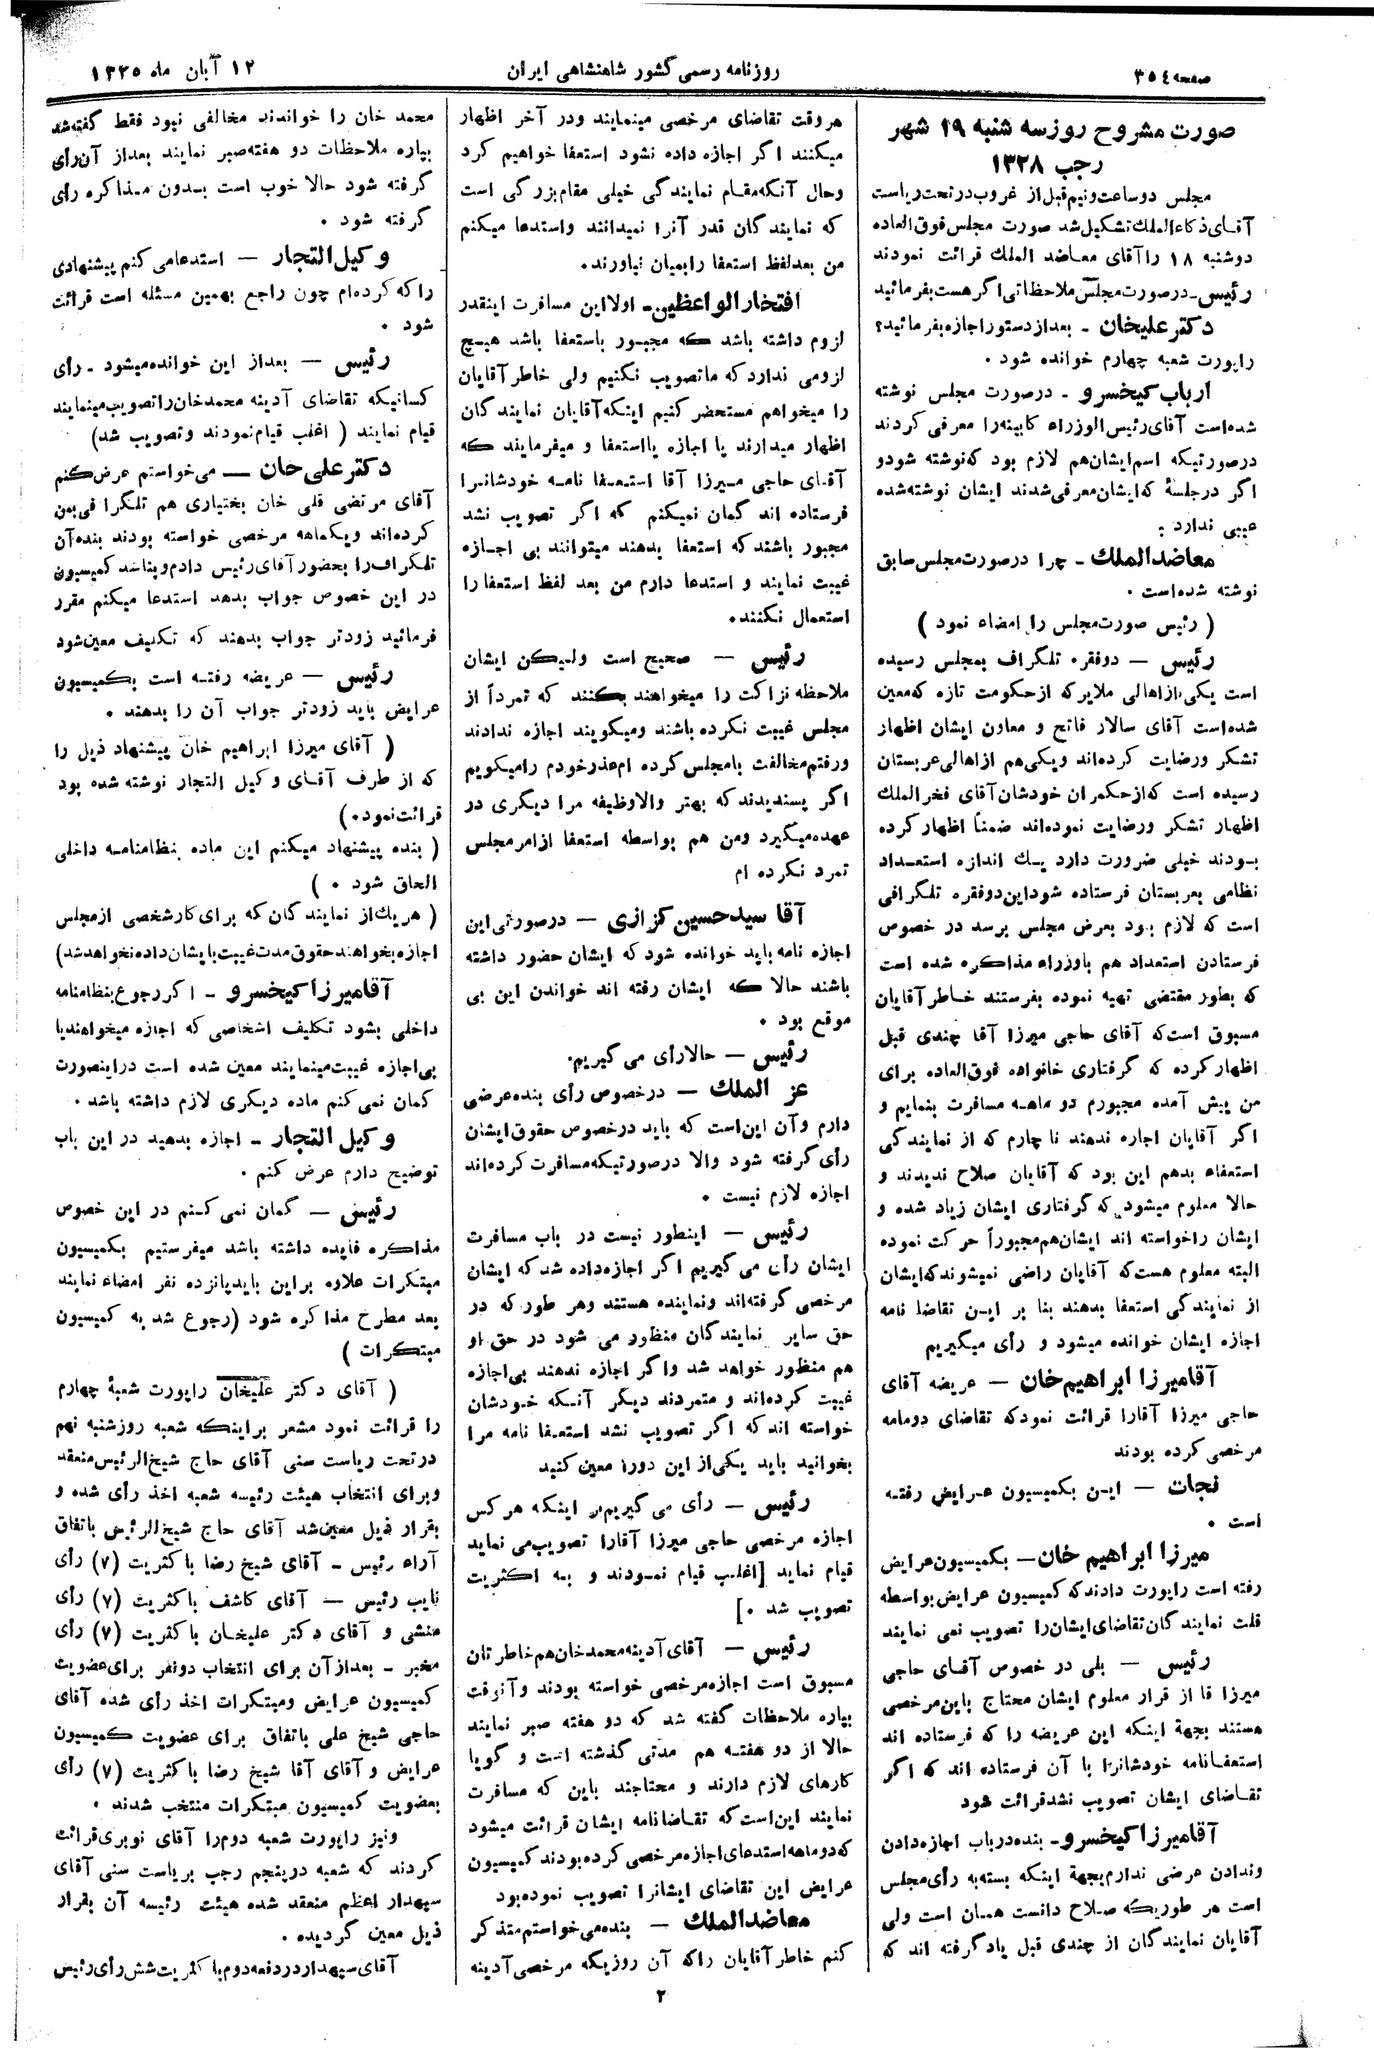 صفحه ۳۵۴
روزنامه رسمی کشور شاهنشاهی ایران
۱۲ آبان ماه ۱۳۲۵
صورت مشروح روز سه شنبه ۱۹ شهر
رجب ۱۳۲۸
مجلس دو ساعت و نیم قبل از غروب در تحت ریاست
آقای ذکاءالملک تشکیل شد صورت مجلس فوق العاده
دوشنبه ۱۸ را آقای معاضد الملک قرائت نمودند
رئیس ـ در صورت مجلس ملاحظاتی اگر هست بفرمائید
دکتر علیخان ـ بعد از دستور اجازه بفرمائید؟
راپورت شعبه چهارم خوانده شود .
ارباب کیخسرو ـ در صورت مجلس نوشته
شده است آقای رئیس الوزراء کابینه را معرفی کردند
در صورتیکه اسم ایشان هم لازم بود که نوشته شود و
اگر در جلسهٔ که ایشان معرفی شدند ایشان نوشته شده
عیبی ندارد .
معاضد الملک ـ چرا در صورت مجلس سابق
نوشته شده است .
( رئیس صورت مجلس را امضاء نمود )
رئیس — دو فقره تلگراف بمجلس رسیده
است یکی از اهالی ملایر که از حکومت تازه که معین
شده است آقای سالار فاتح و معاون ایشان اظهار
تشکر و رضایت کرده اند و یکی هم از اهالی عربستان
رسیده است که از حکمران خودشان آقای فخر الملک
اظهار تشکر و رضایت نموده اند ضمناً اظهار کرده
بودند خیلی ضرورت دارد یک اندازه استعداد
نظامی بعربستان فرستاده شود این دو فقره تلگرافی
است که لازم بود بعرض مجلس برسد در خصوص
فرستادن استعداد هم با وزراء مذاکره شده است
که بطور مقتضی تهیه نموده بفرستند خاطر آقایان
مسبوق است که آقای حاجی میرزا آقا چندی قبل
اظهار کرده که گرفتاری خانواده فوق العاده برای
من پیش آمده مجبورم دو ماهه مسافرت بنمایم و
اگر آقایان اجازه ندهند ناچارم که از نمایندگی
استعفاء بدهم این بود که آقایان صلاح ندیدند و
حالا معلوم میشود که گرفتاری ایشان زیاد شده و
ایشان را خواسته اند ایشان هم مجبوراً حرکت نموده
البته معلوم هست که آقایان راضی نمیشوند که ایشان
از نمایندگی استعفا بدهند بنا بر این تقاضا نامه
اجازه ایشان خوانده میشود و رأی میگیریم
آقا میرزا ابراهیم خان — عریضه آقای
حاجی میرزا آقا را قرائت نمود که تقاضای دو ماهه
مرخصی کرده بودند
نجات — این بکمیسیون عرایض رفته
است .
میرزا ابراهیم خان — بکمیسیون عرایض
رفته است راپورت دادند که کمیسیون عرایض بواسطه
قلت نمایندگان تقاضای ایشان را تصویب نمی نمایند
رئیس — بلی در خصوص آقای حاجی
میرزا قا از قرار معلوم ایشان محتاج باین مرخصی
هستند بجهة اینکه این عریضه را که فرستاده اند
استعفا نامه خودشانرا با آن فرستاده اند که اگر
تقاضای ایشان تصویب نشد قرائت شود
آقا میرزا کیخسرو ـ بنده در باب اجازه دادن
و ندادن عرضی ندارم بجهة اینکه بسته به رأی مجلس
است هر طوریکه صلاح دانست همان است ولی
آقایان نمایندگان از چندی قبل یاد گرفته اند که
هر وقت تقاضای مرخصی مینمایند و در آخر اظهار
میکنند اگر اجازه داده نشود استعفا خواهیم کرد
و حال آنکه مقام نمایندگی خیلی مقام بزرگی است
که نمایندگان قدر آنرا نمیدانند و استدعا میکنم
من بعد لفظ استعفا را بمیان نیاورند .
افتخار الواعظین ـ اولا این مسافرت اینقدر
لزوم داشته باشد که مجبور باستعفا باشد هیچ
لزومی ندارد که ما تصویب نکنیم ولی خاطر آقایان
را میخواهم مستحضر کنیم اینکه آقایان نمایندگان
اظهار میدارند یا اجازه یا استعفا و میفرمایند که
آقای حاجی میرزا آقا استعفا نامه خودشانرا
فرستاده اند گمان نمیکنم که اگر تصویب نشد
مجبور باشند که استعفا بدهند میتوانند بی اجازه
غیبت نمایند و استدعا دارم من بعد لفظ استعفا را
استعمال نکنند .
رئیس — صحیح است ولیکن ایشان
ملاحظه نزاکت را میخواهند بکنند که تمرداً از
مجلس غیبت نکرده باشند و میگویند اجازه ندادند
و رفتم مخالفت با مجلس کرده ام عذر خودم را میگویم
اگر پسندیدند که بهتر والا وظیفه مرا دیگری در
عهده میگیرد و من هم بواسطه استعفا از امر مجلس
تمرد نکرده ام
آقا سید حسین کزازی — در صورتی این
اجازه نامه باید خوانده شود که ایشان حضور داشته
باشند حالا که ایشان رفته اند خواندن این بی
موقع بود .
رئیس — حالا رأی می گیریم .
عز الملک — در خصوص رأی بنده عرضی
دارم و آن این است که باید در خصوص حقوق ایشان
رأی گرفته شود والا در صورتیکه مسافرت کرده اند
اجازه لازم نیست .
رئیس — اینطور نیست در باب مسافرت
ایشان رأی می گیریم اگر اجازه داده شد که ایشان
مرخصی گرفته اند و نماینده هستند و هر طور که در
حق سایر نمایندگان منظور می شود در حق او
هم منظور خواهد شد و اگر اجازه ندهند بی اجازه
غیبت کرده اند و متمردند دیگر آنکه خودشان
خواسته اند که اگر تصویب نشد استعفا نامه مرا
بخوانید باید یکی از این دو را معین کنید
رئیس — رأی می گیریم بر اینکه هر کس
اجازه مرخصی حاجی میرزا آقا را تصویب می نماید
قیام نماید [اغلب قیام نمودند و به اکثریت
تصویب شد .]
رئیس — آقای آدینه محمد خان هم خاطرتان
مسبوق است اجازه مرخصی خواسته بودند و آنوقت
بپاره ملاحظات گفته شد که دو هفته صبر نمایند
حالا از دو هفته هم مدتی گذشته است و گویا
کارهای لازم دارند و محتاجند باین که مسافرت
نمایند این است که تقاضانامه ایشان قرائت میشود
که دو ماهه استدعای اجازه مرخصی کرده بودند کمیسیون
عرایض این تقاضای ایشانرا تصویب نموده بود
معاضد الملک — بنده می خواستم متذکر
کنم خاطر آقایان را که آن روزیکه مرخصی آدینه
محمد خان را خواندند مخالفی نبود فقط گفته شد
بپاره ملاحظات دو هفته صبر نمایند بعد از آن رأی
گرفته شود حالا خوب است بدون مذاکره رأی
گرفته شود .
وکیل التجار — استدعا می کنم پیشنهادی
را که کرده ام چون راجع بهمین مسئله است قرائت
شود .
رئیس — بعد از این خوانده میشود ـ رأی
کسانیکه تقاضای آدینه محمد خان را تصویب مینمایند
قیام نمایند ( اغلب قیام نمودند و تصویب شد )
دکتر علی خان — می خواستم عرض کنم
آقای مرتضی قلی خان بختیاری هم تلگرافی بمن
کرده اند و یکماهه مرخصی خواسته بودند بنده آن
تلگراف را بحضور آقای رئیس دادم و بنا شد کمیسیون
در این خصوص جواب بدهد استدعا میکنم مقرر
فرمائید زودتر جواب بدهند که تکلیف معین شود
رئیس — عریضه رفته است بکمیسیون
عرایض باید زودتر جواب آن را بدهند .
( آقای میرزا ابراهیم خان پیشنهاد ذیل را
که از طرف آقای وکیل التجار نوشته شده بود
قرائت نمود . )
( بنده پیشنهاد میکنم این ماده بنظامنامه داخلی
الحاق شود . )
( هر یک از نمایندگان که برای کار شخصی از مجلس
اجازه بخواهند حقوق مدت غیبت بایشان داده نخواهد شد )
آقا میرزا کیخسرو ـ اگر رجوع بنظامنامه
داخلی بشود تکلیف اشخاصی که اجازه میخواهند یا
بی اجازه غیبت مینمایند معین شده است در اینصورت
گمان نمی کنم ماده دیگری لازم داشته باشد .
وکیل التجار ـ اجازه بدهید در این باب
توضیح دارم عرض کنم .
رئیس — گمان نمی کنم در این خصوص
مذاکره فایده داشته باشد میفرستیم بکمیسیون
مبتکرات علاوه بر این باید پانزده نفر امضاء نمایند
بعد مطرح مذاکره شود (رجوع شد به کمیسیون
مبتکرات )
( آقای دکتر علیخان راپورت شعبهٔ چهارم
را قرائت نمود مشعر بر اینکه شعبه روز شنبه نهم
در تحت ریاست سنی آقای حاج شیخ الرئیس منعقد
و برای انتخاب هیئت رئیسه شعبه اخذ رأی شده و
بقرار ذیل معین شد آقای حاج شیخ الرئیس باتفاق
آراء رئیس ـ آقای شیخ رضا باکثریت (۷) رأی
نایب رئیس — آقای کاشف باکثریت (۷) رأی
منشی و آقای دکتر علیخان باکثریت (۷) رأی
مخبر ـ بعد از آن برای انتخاب دو نفر برای عضویت
کمیسیون عرایض و مبتکرات اخذ رأی شده آقای
حاجی شیخ علی باتفاق برای عضویت کمیسیون
عرایض و آقای آقا شیخ رضا باکثریت (۷) رأی
بعضویت کمیسیون مبتکرات منتخب شدند .
و نیز راپورت شعبه دوم را آقای نوبری قرائت
کردند که شعبه در پنجم رجب بریاست سنی آقای
سپهدار اعظم منعقد شده هیئت رئیسه آن بقرار
ذیل معین گردیده .
آقای سپهدار در دفعه دوم با کثریت شش رأی رئیس
۲